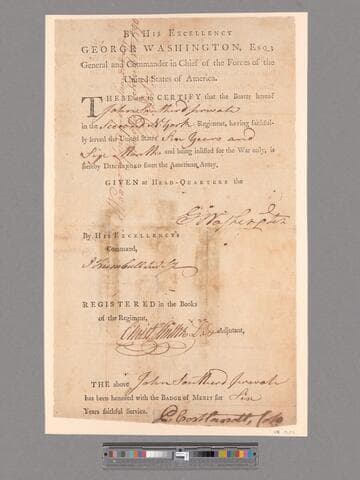 By His Excellency
GEORGE WASHINGTON, Esq;
General and Commander in Chief of the Forces of the
United States of America.
THESE are to CERTIFY that the Bearer hereof
John Southerd private
in the Second N York Regiment, having faithful-
ly served the United States Six Years and
Six Months and being inlisted for the War only, is
hereby DISCHARGED from the American Army.
GIVEN at HEAD-QUARTERS the
G Washington
By HIS EXCELLENCY's
Command,
J Trumbull
REGISTERED in the Books
of the Regiment,
Adjutant,
THE above John Southerd private
has been honored with the BADGE of MERIT for Six
Years faithful Service.
P. Cortlandt, Col